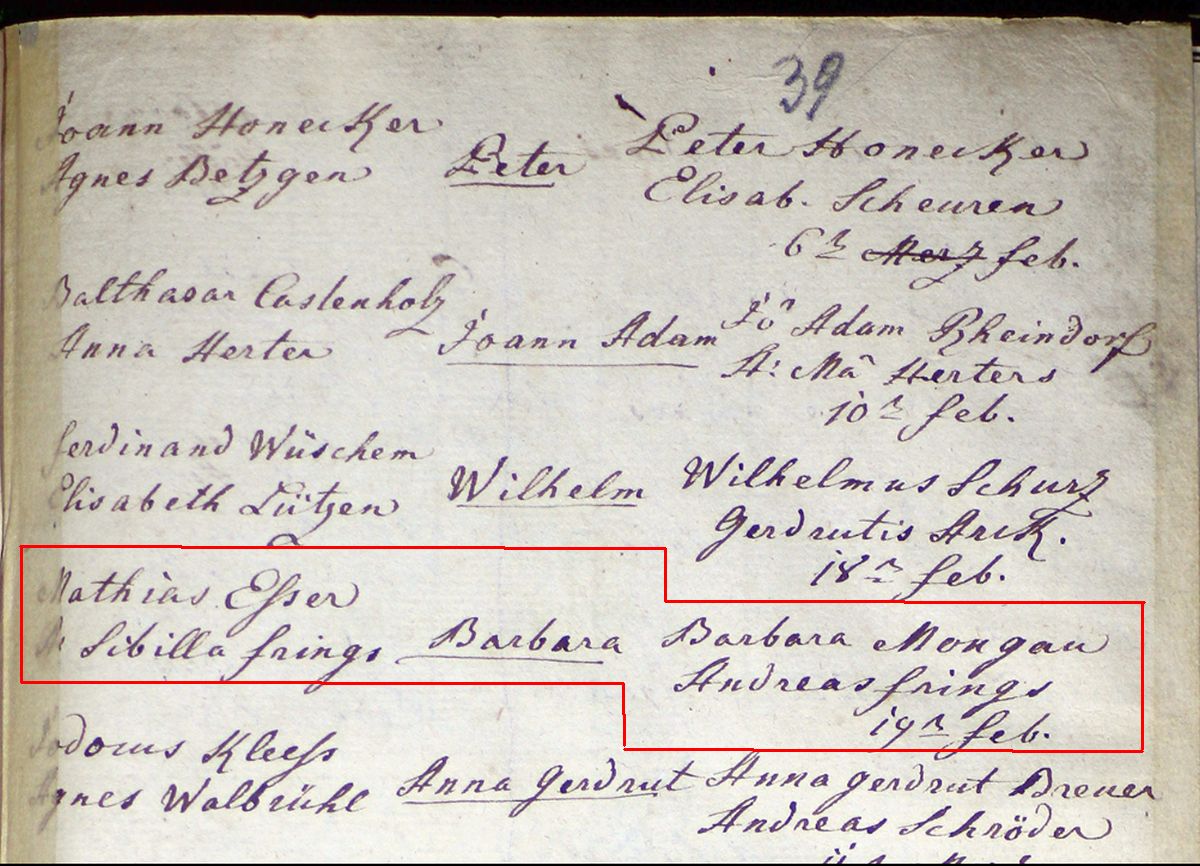 39
Joann Honecker
Agnes Betzgen
Peter
Peter Honecker
Elisab. Scheuren
6ta Merz feb.
Balthasar Castenholz
Anna Herter
Joann Adam
Jo͞ Adam Rheindorf
A: Mâ Herters
10ta feb.
ferdinand Wüschem
Elisabeth Lützen
Wilhelm
Wilhelmus Schurz
Gerdrutis Arck.
18ta feb.
Mathias Esser
A: Sibilla frings
Barbara
Barbara Mongau
Andreas frings
19ta feb.
Jodocus Kleess
Agnes Walbrühl
Anna Gerdrut
Anna gerdrut Breuer
Andreas Schröder